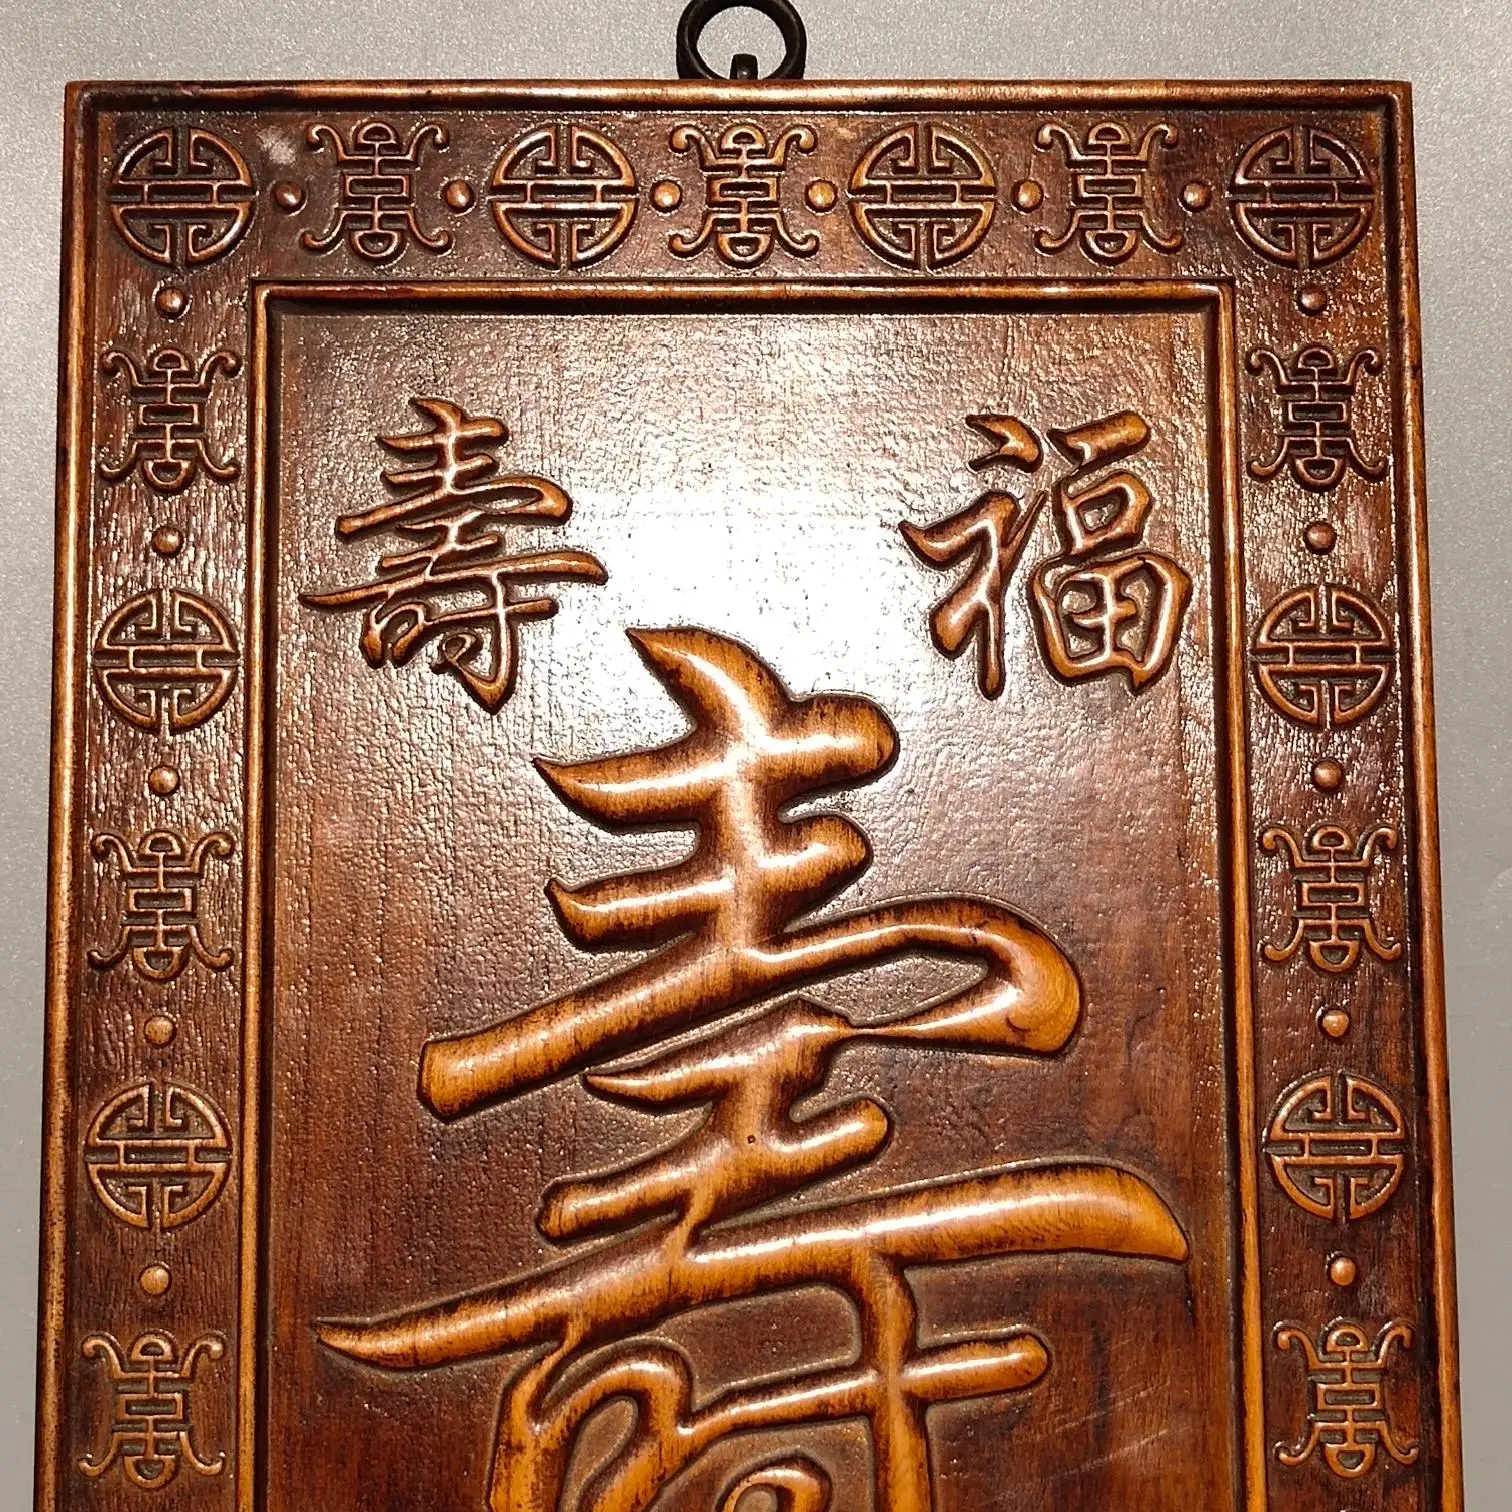 福壽
壽